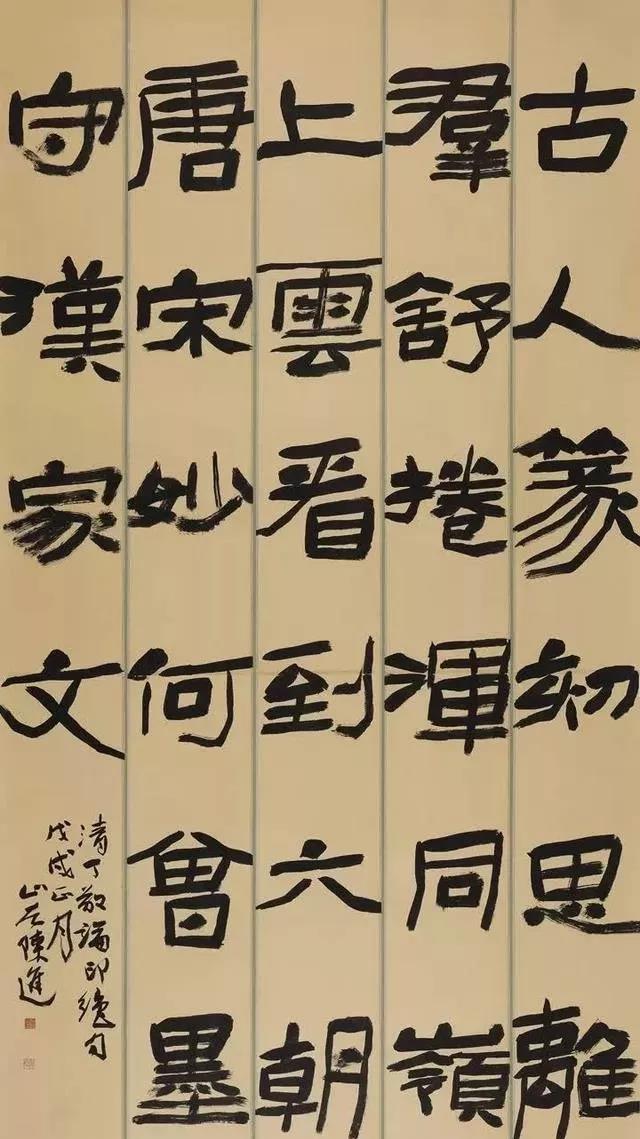 古人篆刻思離
羣舒捲渾同嶺
上雲看到六朝
唐宋妙何曾墨
守漢家文
清丁敬論印絕句
戊戌正月
陳進